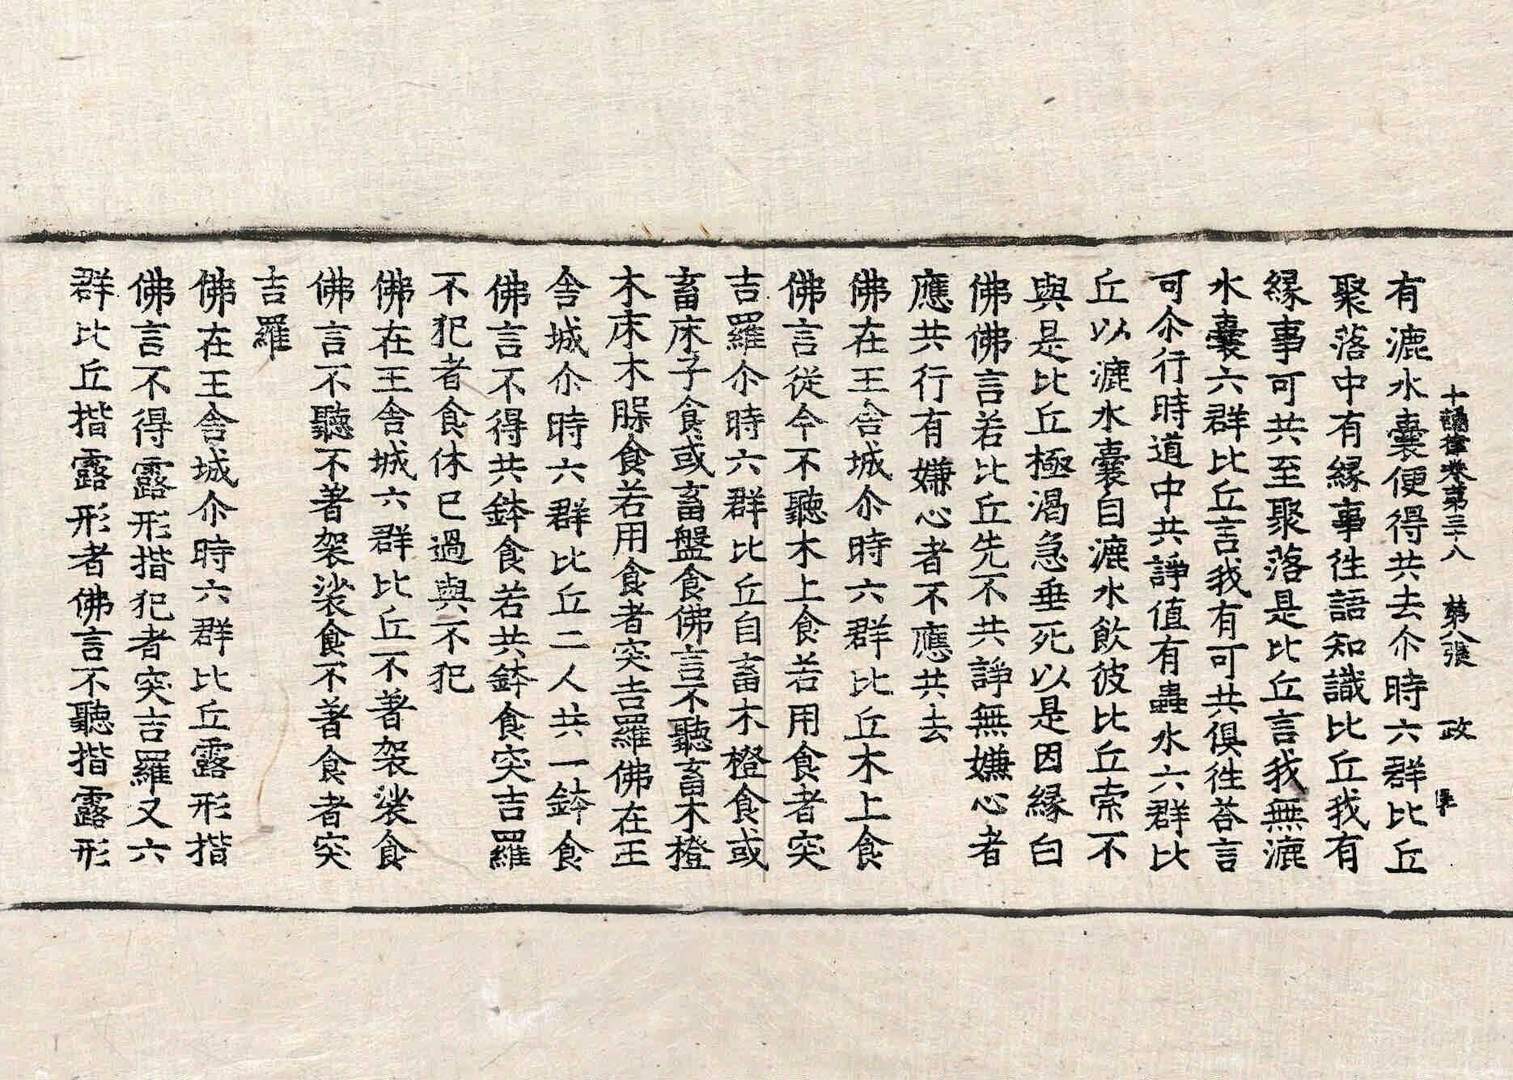 十誦律卷第三十八　第八張　政
有漉水囊便得共去尒時六群比丘
聚落中有緣事徃語知識比丘我有
緣事可共至聚落是比丘言我無漉
水囊六群比丘言我有可共俱徃荅言
可尒行時道中共諍值有蟲水六群比
丘以漉水囊自漉水飲彼比丘索不
與是比丘極渴急垂死以是因緣白
佛佛言若比丘先不共諍無嫌心者
應共行有嫌心者不應共去
佛在王舍城尒時六群比丘木上食
佛言從今不聽木上食若用食者突
吉羅尒時六群比丘自畜木橙食或
畜床子食或畜盤食佛言不聽畜木橙
木床木脲食若用食者突吉羅佛在王
舍城尒時六群比丘二人共一鉢食
佛言不得共鉢食若共鉢食突吉羅
不犯者食休已過與不犯
佛在王舍城六群比丘不著袈裟食
佛言不聽不著袈裟食不著食者突
吉羅
佛在王舍城尒時六群比丘露形揩
佛言不得露形揩犯者突吉羅又六
群比丘揩露形者佛言不聽揩露形